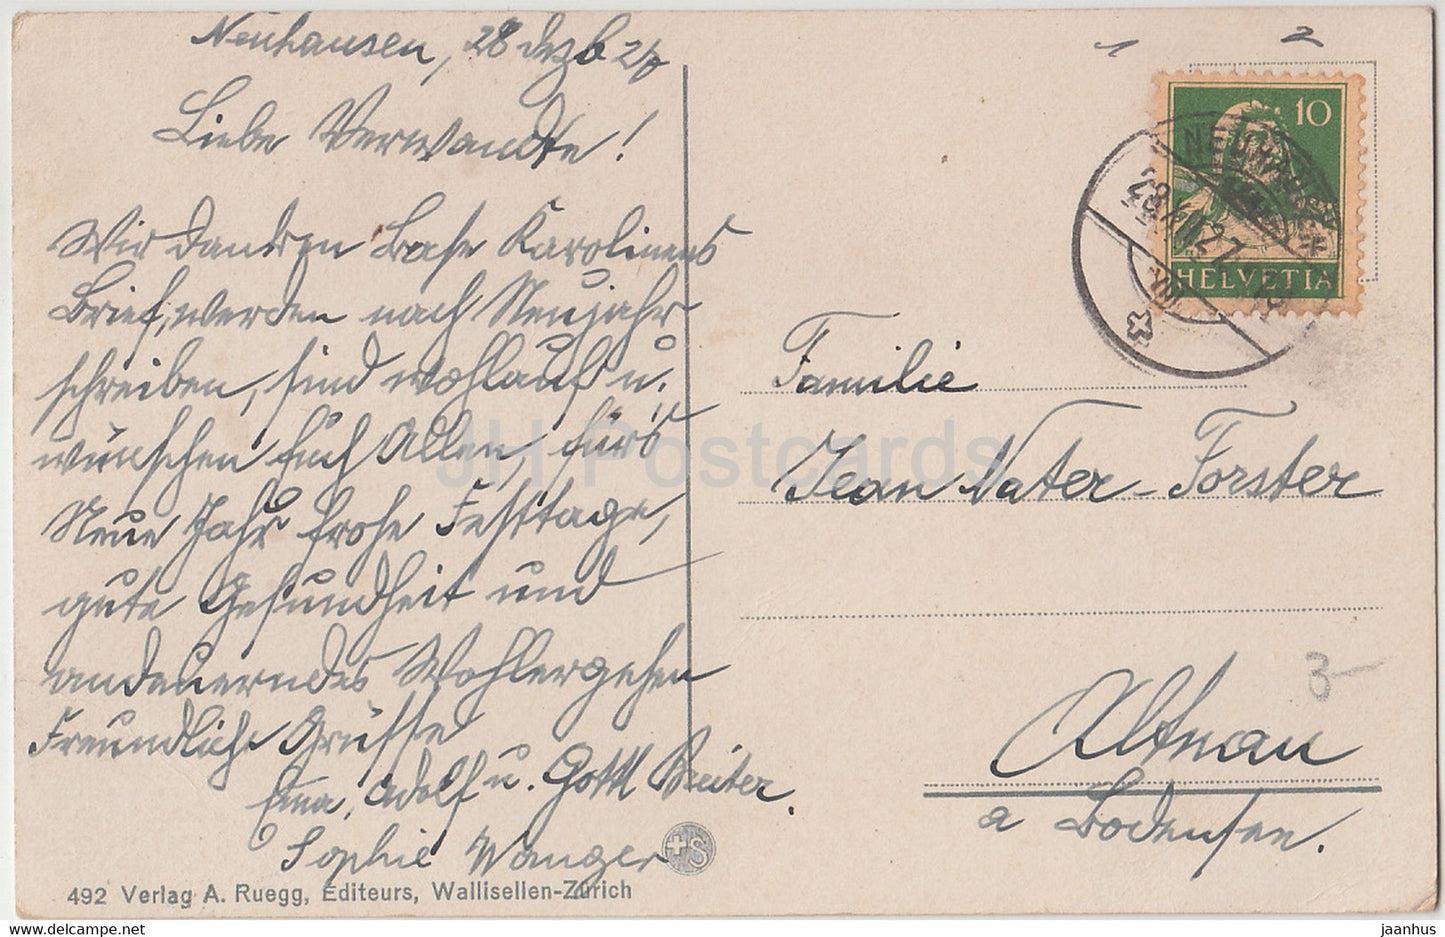 Neuhausen, 28 Dezb 27
Liebe Verwandte!
Wir danken Base Karolinens
Brief, werden nach Neujahr
schreiben, sind wohlauf u.
wünschen Euch Allen, fürs
Neue Jahr frohe Festtage,
gute Gesundheit und
andauerndes Wohlergehen
Freundliche Grüsse
Emma, Adolf u. Gottl Reiter.
Sophie Wanger
492 Verlag A. Ruegg, Editeurs, Wallisellen-Zürich
+S
1 2
10
HELVETIA
NEUHAUSEN
28.XII.27
Familie
Jean Vater-Forster
3-
Altnau
a Bodensee.
JH Postcards
jaanhus